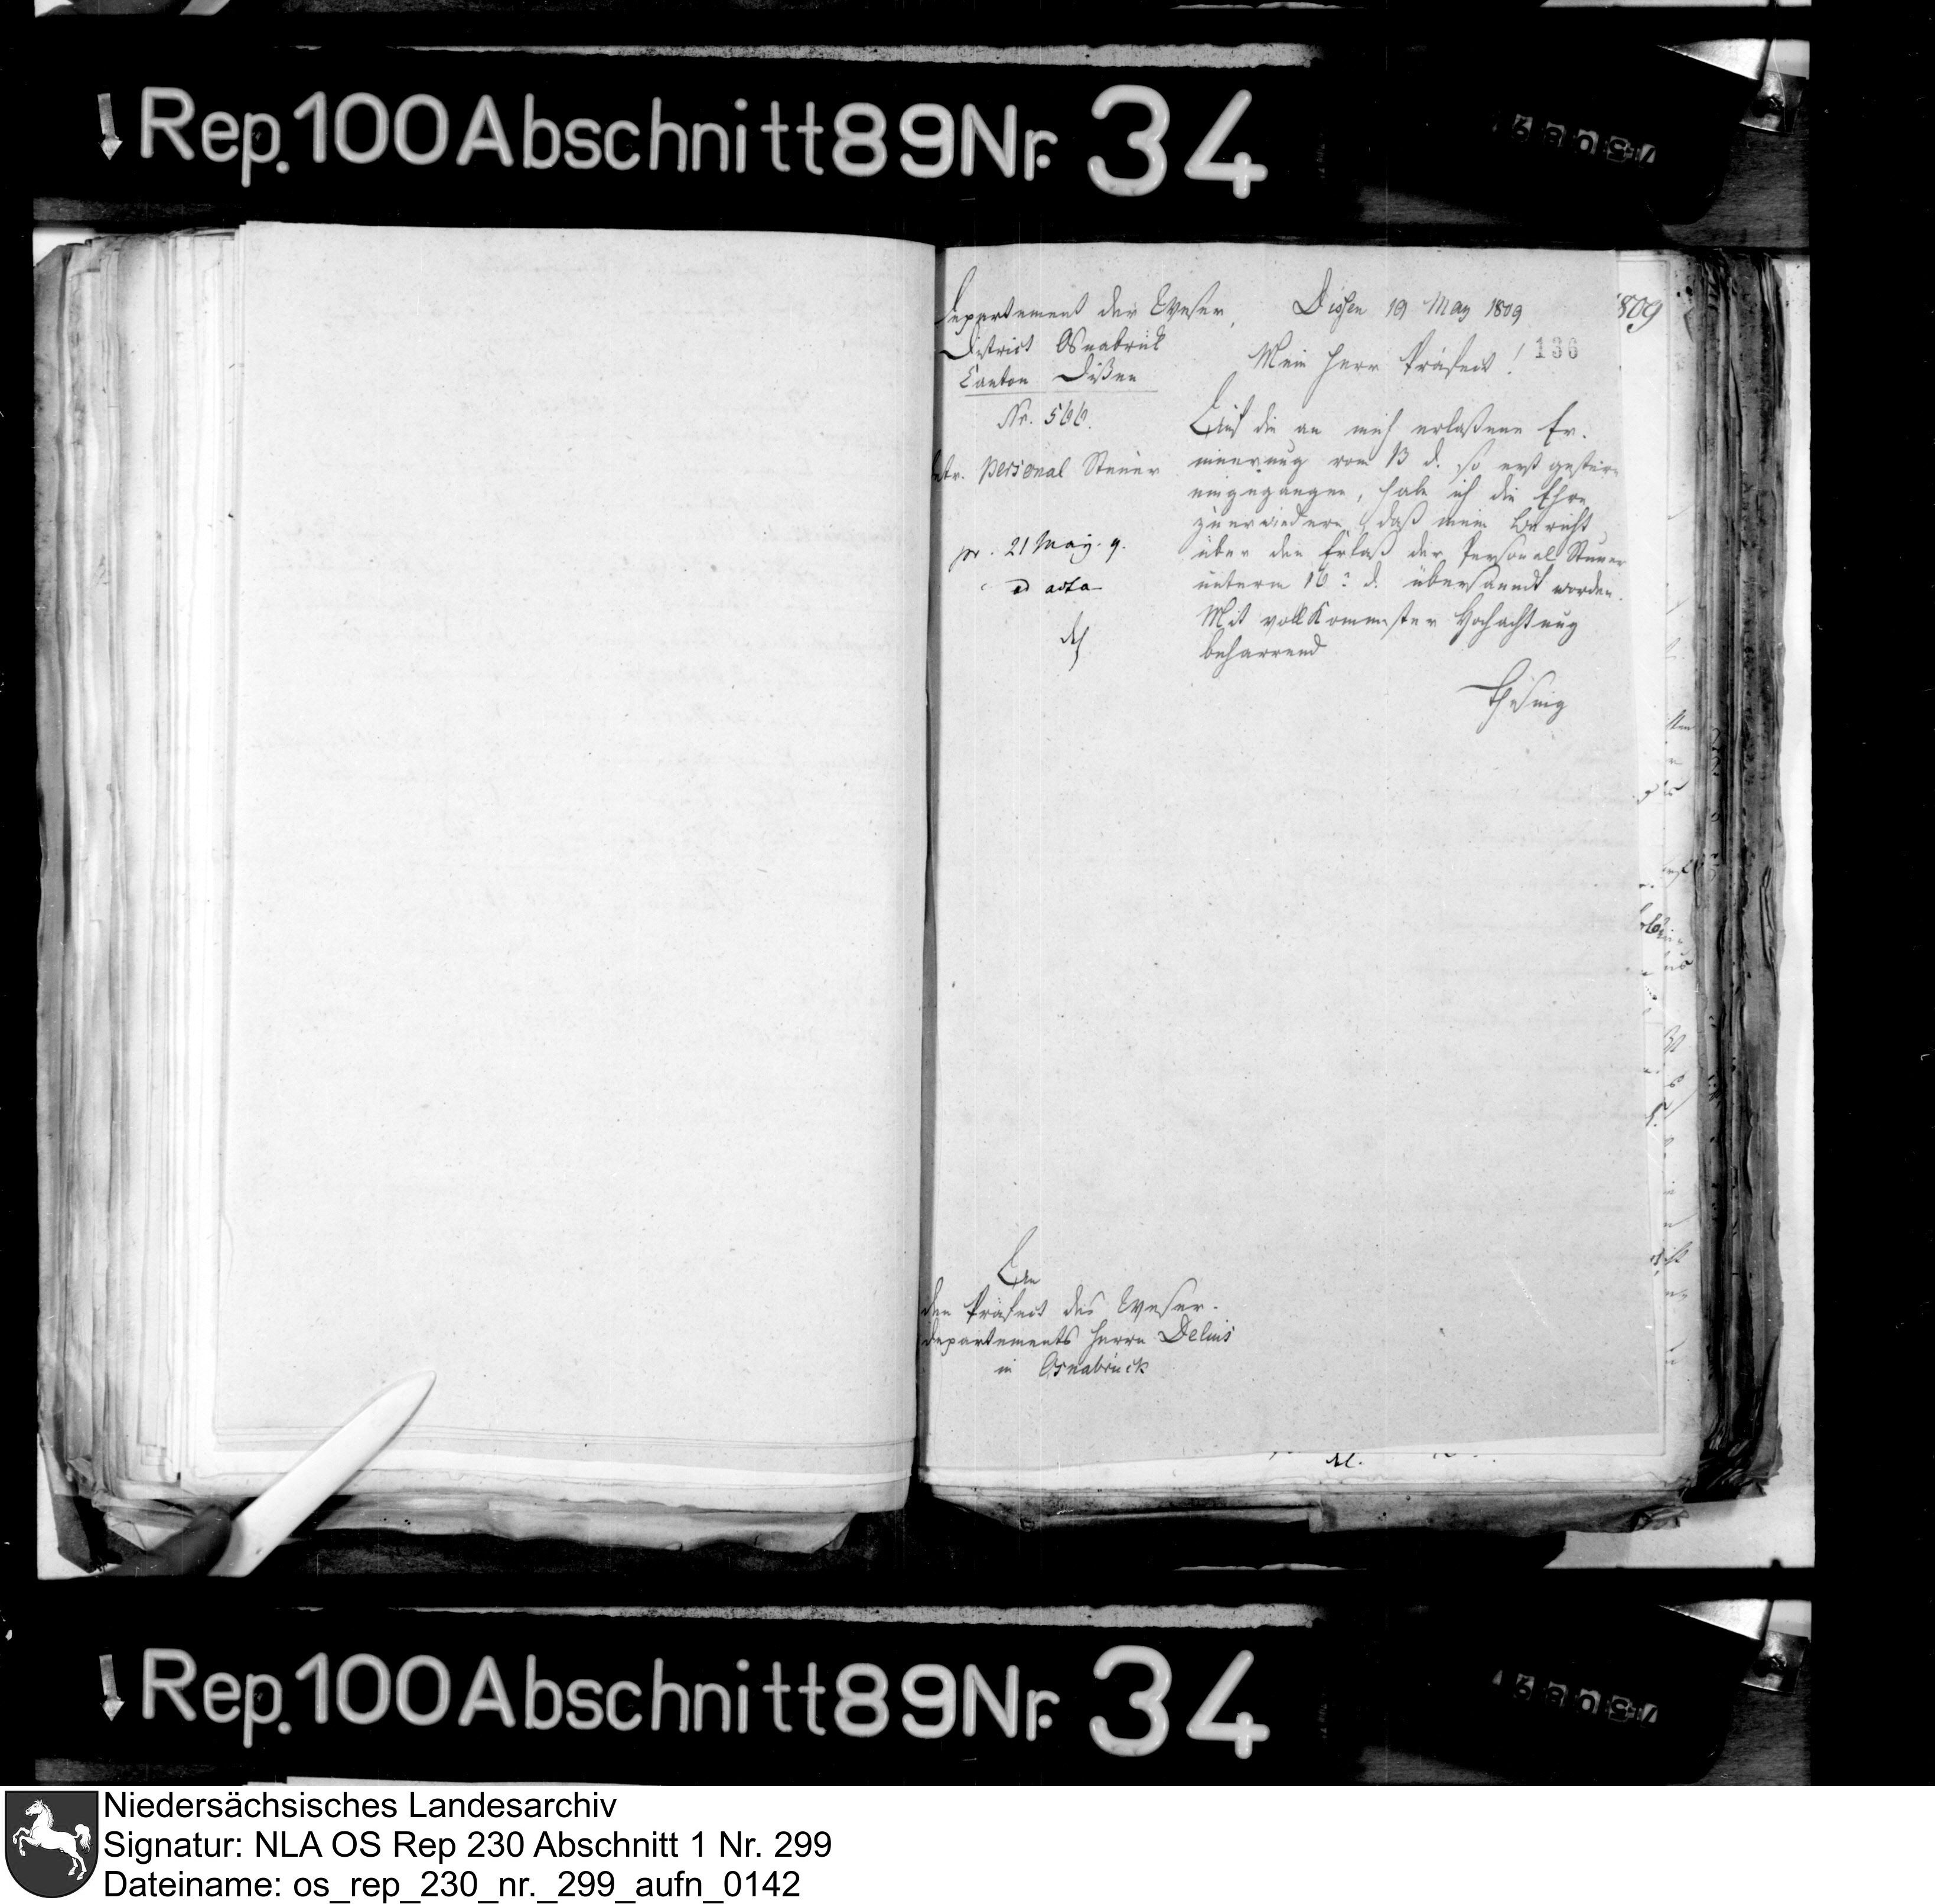 Rep. 100 Abschnitt 89 Nr. 34
Departement der Weser,
District Osnabrück
Canton Dißen
Nr. 566.
betr. Personal Steuer
pr. 21 May. 9.
ad acta
Dissen 19 May 1809
1809
136
Mein Herr Präfect!
Auf die an mich erlaßene Er-
innerung vom 13 d. so erst gestern
eingegangen, habe ich die Ehre
zu erwiedern, daß mein Bericht
über den Erlaß der Personal Steuer
unterm 16 d. übersandt worden.
Mit vollkommenster Hochachtung
beharrend
Thesing
An
den Präfect des Weser-
departements Herrn Delius
in Osnabrück
Rep. 100 Abschnitt 89 Nr. 34
Niedersächsisches Landesarchiv
Signatur: NLA OS Rep 230 Abschnitt 1 Nr. 299
Dateiname: os_rep_230_nr._299_aufn_0142